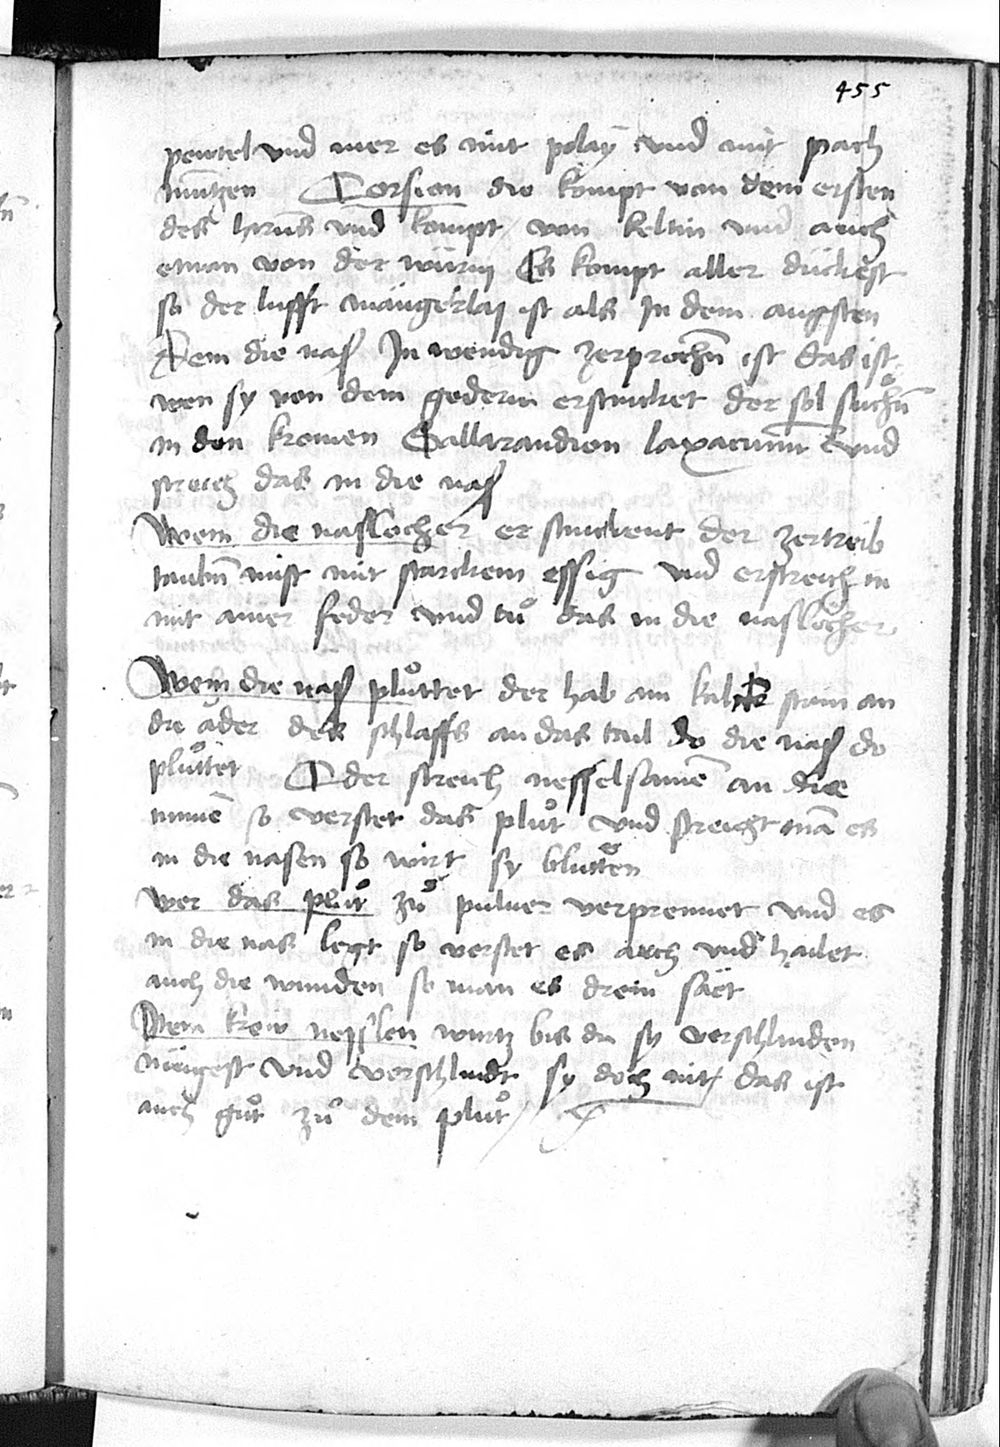 455
pewtel vnd mer es mit polay vnd mit pach
mintzen Corsian die kompt von dem ersten
des hirns vnd kompt von keltin vnd auch
etwan von der würm Es kompt aller dickest
so der lufft mangerlai ist als In dem augsten
Wem die nass In wendig zerprochn̄ ist das ist
wen sy von dem gederm erstincket der sol suchn̄
in den kromen laxatiuum vnd
streich das in die nass
Wem die naslöcher er stinckent der zertreib
taubn̄ mist mit starckem essig vnd erstreich in
mit ainer feder vnd tů das in die naslöcher
Wem die nass plůttet der hab ain stain an
die ader des schlaffs an das tail do die nass do
plůttet Oder streich nesselsamē an die
so verstet das plůt vnd streicht mā es
in die nasen so wirt sy blůtten
wer das plůt zů puluer verprennet vnd es
in die nas legt so verstet es auch vnd hailet
auch die wunden so man es drein säet
Item krew nesslen wurtz bis du sy verschlinden
mügest vnd verschlindt sy doch nit das ist
auch gůt zů dem plůt